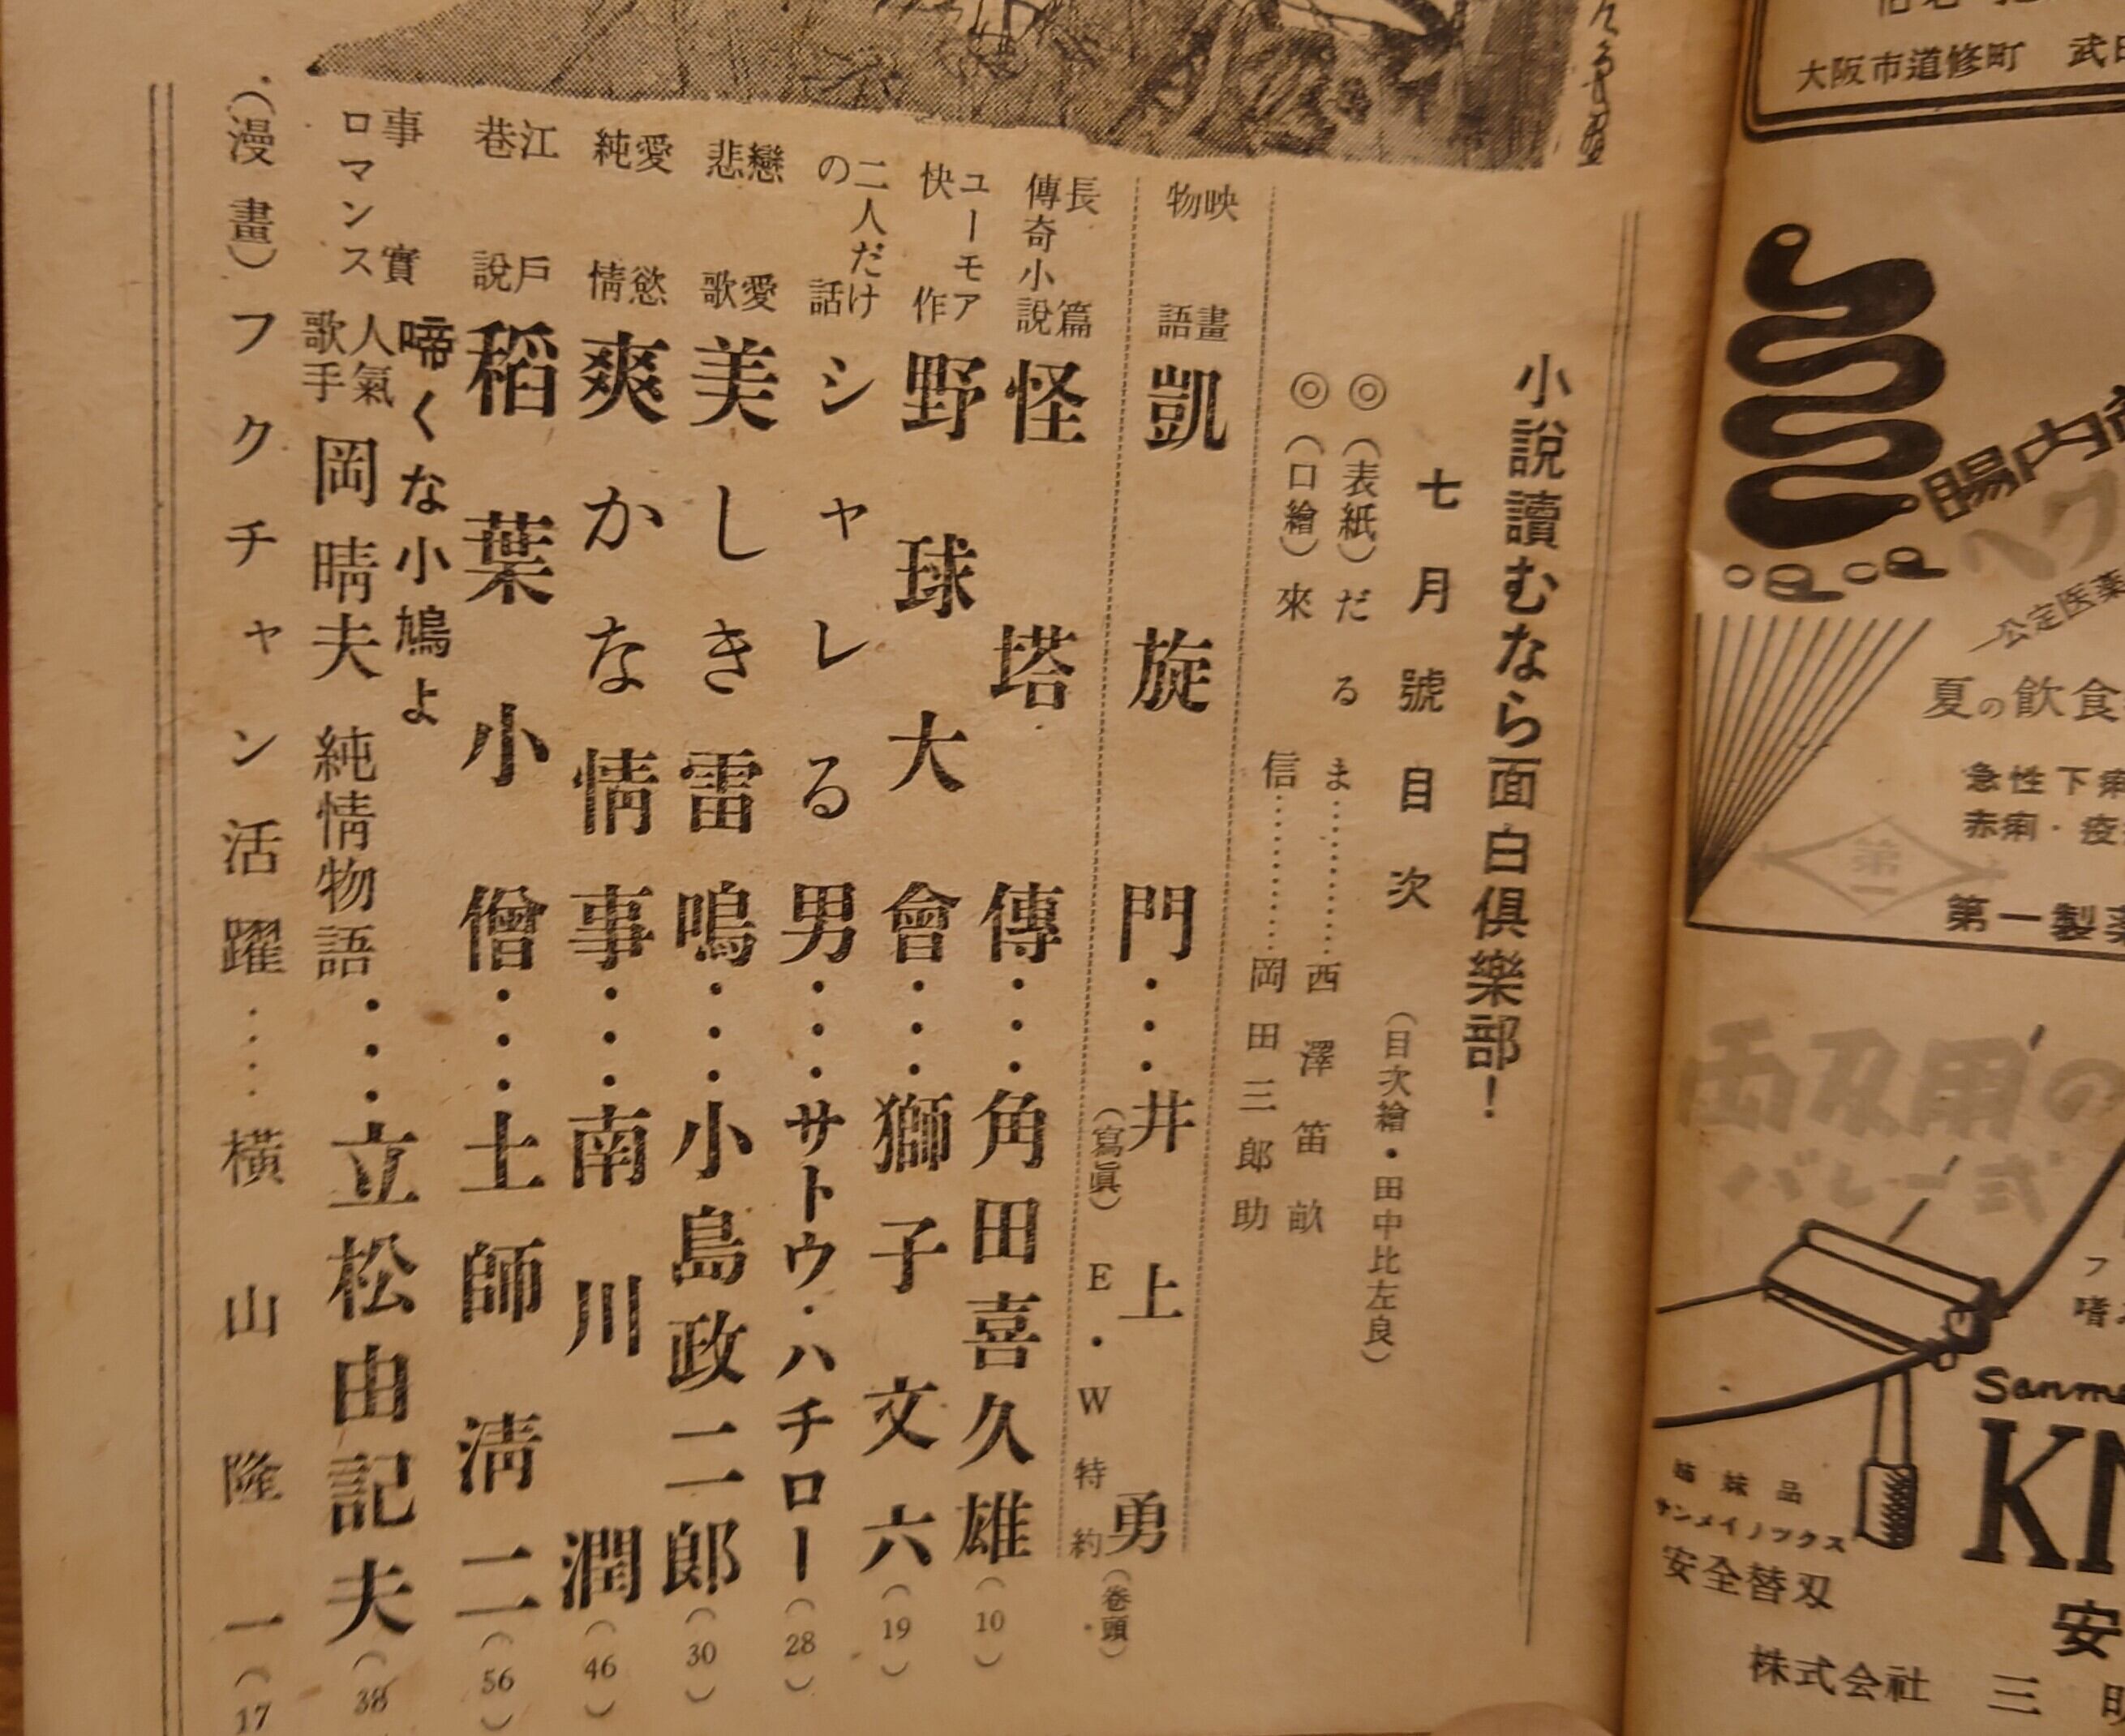 大阪市道修町 武田
腸内
ヘワ
公定医薬
夏の飲食
急性下痢
赤痢・疫
第一
第一製薬
両刃用の
バレー式
Sanme
KN
姉妹品
サンメイノックス
安全替刃
安
株式会社 三
小說讀むなら面白俱樂部!
七月號目次
(目次繪・田中比左良)
◎(表紙)だるま…………西澤笛畝
◎(口繪)來信…………岡田三郎助
映畫物語 凱旋門……井上勇(卷頭)
(寫眞)E・W特約
長篇傳奇小說 怪塔傳……角田喜久雄(10)
ユーモア快作 野球大會……獅子文六(19)
二人だけの話 シャレる男……サトウ・ハチロー(28)
戀愛悲歌 美しき雷鳴……小島政二郎(30)
愛慾純情 爽かな情事……南川潤(46)
江戶巷說 稻葉小僧……土師淸二(56)
事實ロマンス 啼くな小鳩よ
人氣歌手 岡晴夫 純情物語……立松由記夫(38)
(漫畫)フクチャン活躍……橫山隆一(17)